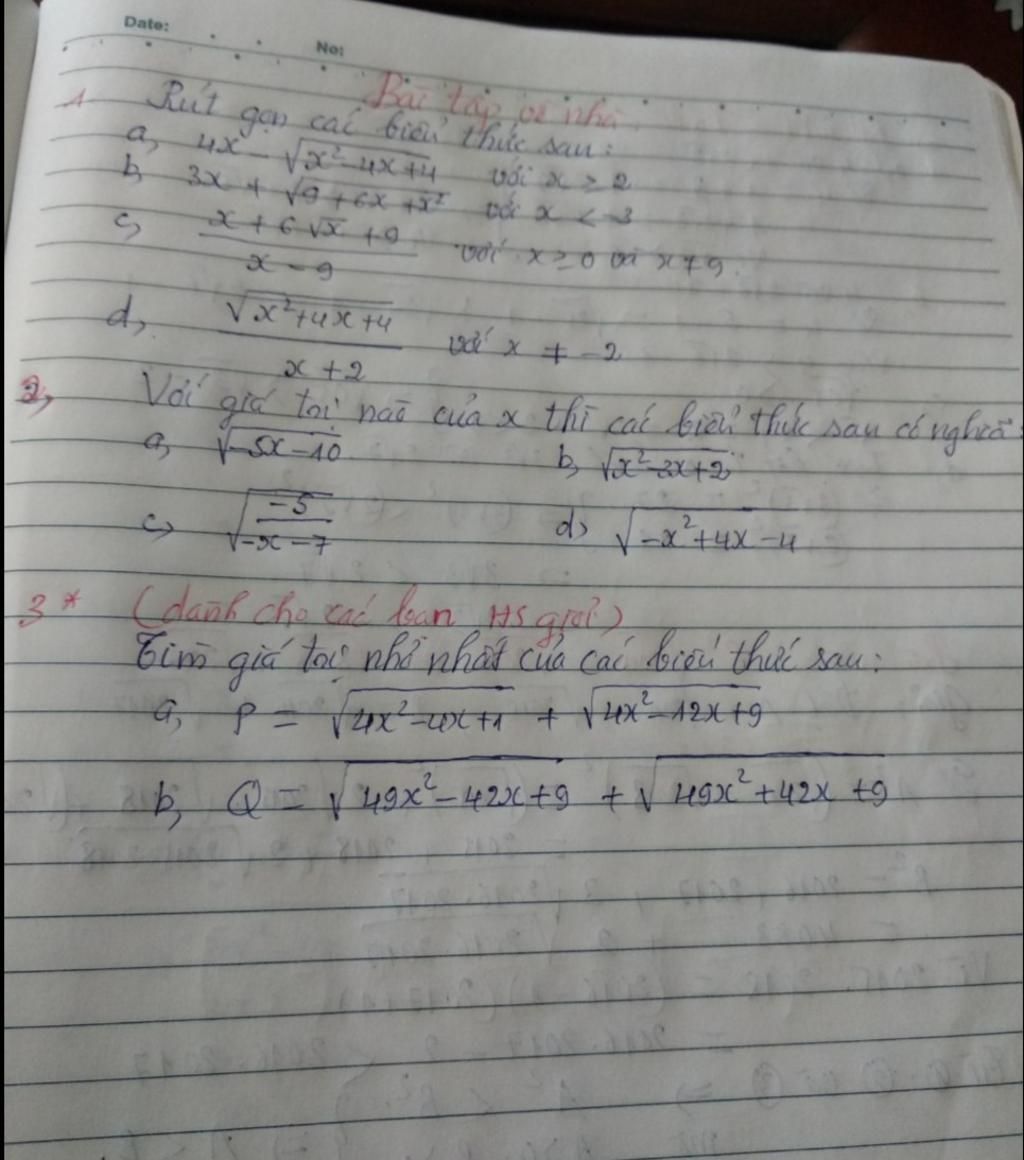 Date:
No:
Bài tập về nhà
1 Rút gọn các biểu thức sau:
a, 4x - √(x²-4x+4) với x ≥ 2
b, 3x + √(9+6x+x²) với x < -3
c, (x+6√x+9)/(x-9) với x ≥ 0 và x ≠ 9
d, √(x²+4x+4)/(x+2) với x ≠ -2
2, Với giá trị nào của x thì các biểu thức sau có nghĩa:
a, √(-5x-10) b, √(x²-3x+2)
c, √(-5/(-x-7)) d, √(-x²+4x-4)
3* (dành cho các bạn HS giỏi)
Tìm giá trị nhỏ nhất của các biểu thức sau:
a, P = √(4x²-4x+1) + √(4x²-12x+9)
b, Q = √(49x²-42x+9) + √(49x²+42x+9)